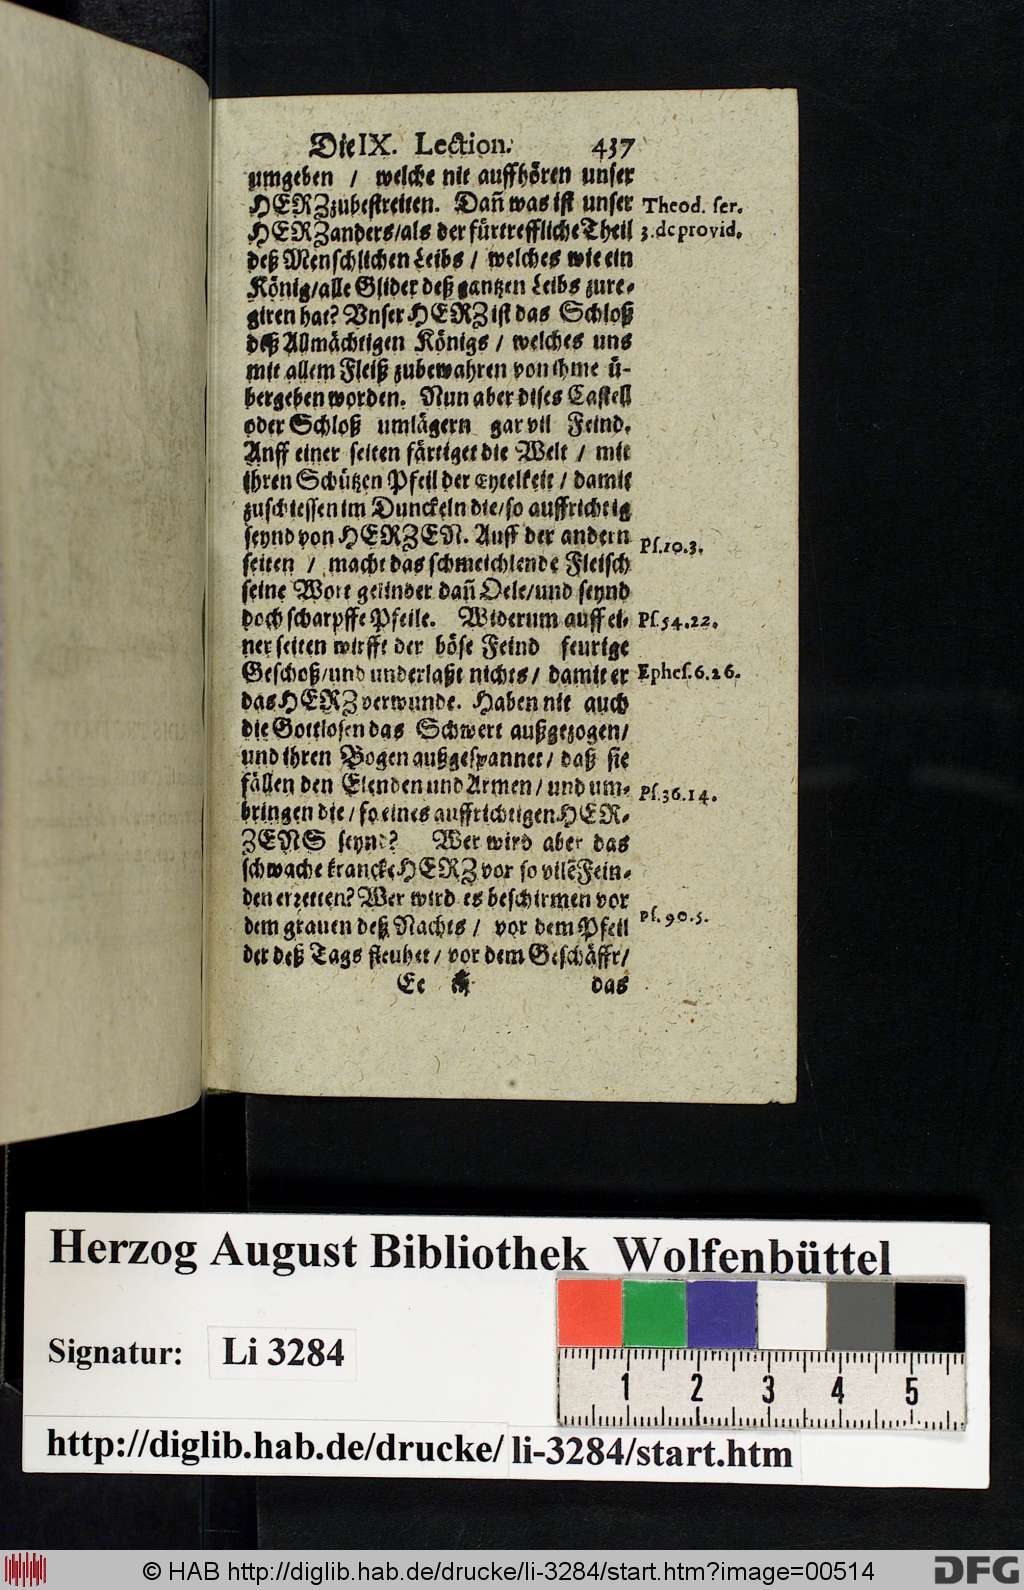 Die IX. Lection. 437
umgeben / welche nit auffhören unser
HERZ zubestreiten. Dañ was ist unser
HERZ anders/als der fürtreffliche Theil
deß Menschlichen Leibs / welches wie ein
König/alle Glider deß gantzen Leibs zure-
giren hat? Vnser HERZ ist das Schloß
deß Allmächtigen Königs / welches uns
mit allem Fleiß zubewahren von ihme ü-
bergeben worden. Nun aber dises Castell
oder Schloß umlägern gar vil Feind.
Auff einer seiten färtiget die Welt / mit
ihren Schützen Pfeil der Eytelkeit / damit
zuschiessen im Dunckeln die/so auffrichtig
seynd von HERZEN. Auff der andern
seiten / macht das schmeichlende Fleisch
seine Wort gelinder dañ Oele/und seynd
doch scharpffe Pfeile. Widerum auff ei-
ner seiten wirfft der böse Feind feurige
Geschoß/und underlaßt nichts / damit er
das HERZ verwunde. Haben nit auch
die Gottlosen das Schwert außgezogen/
und ihren Bogen außgespannet / daß sie
fällen den Elenden und Armen / und um-
bringen die / so eines auffrichtigen HER-
ZENS seynd? Wer wird aber das
schwache krancke HERZ vor so vilẽ Fein-
den erretten? Wer wird es beschirmen vor
dem grauen deß Nachts / vor dem Pfeil
der deß Tags fleuhet / vor dem Geschäfft/
Ee das
Theod. ser.
3. de provid.
Ps. 10. 3.
Ps. 54. 22.
Ephes. 6. 26.
Ps. 36. 14.
Ps. 90. 5.
Herzog August Bibliothek Wolfenbüttel
Signatur: Li 3284
1 2 3 4 5
http://diglib.hab.de/drucke/ li-3284/start.htm
© HAB http://diglib.hab.de/drucke/li-3284/start.htm?image=00514
DFG